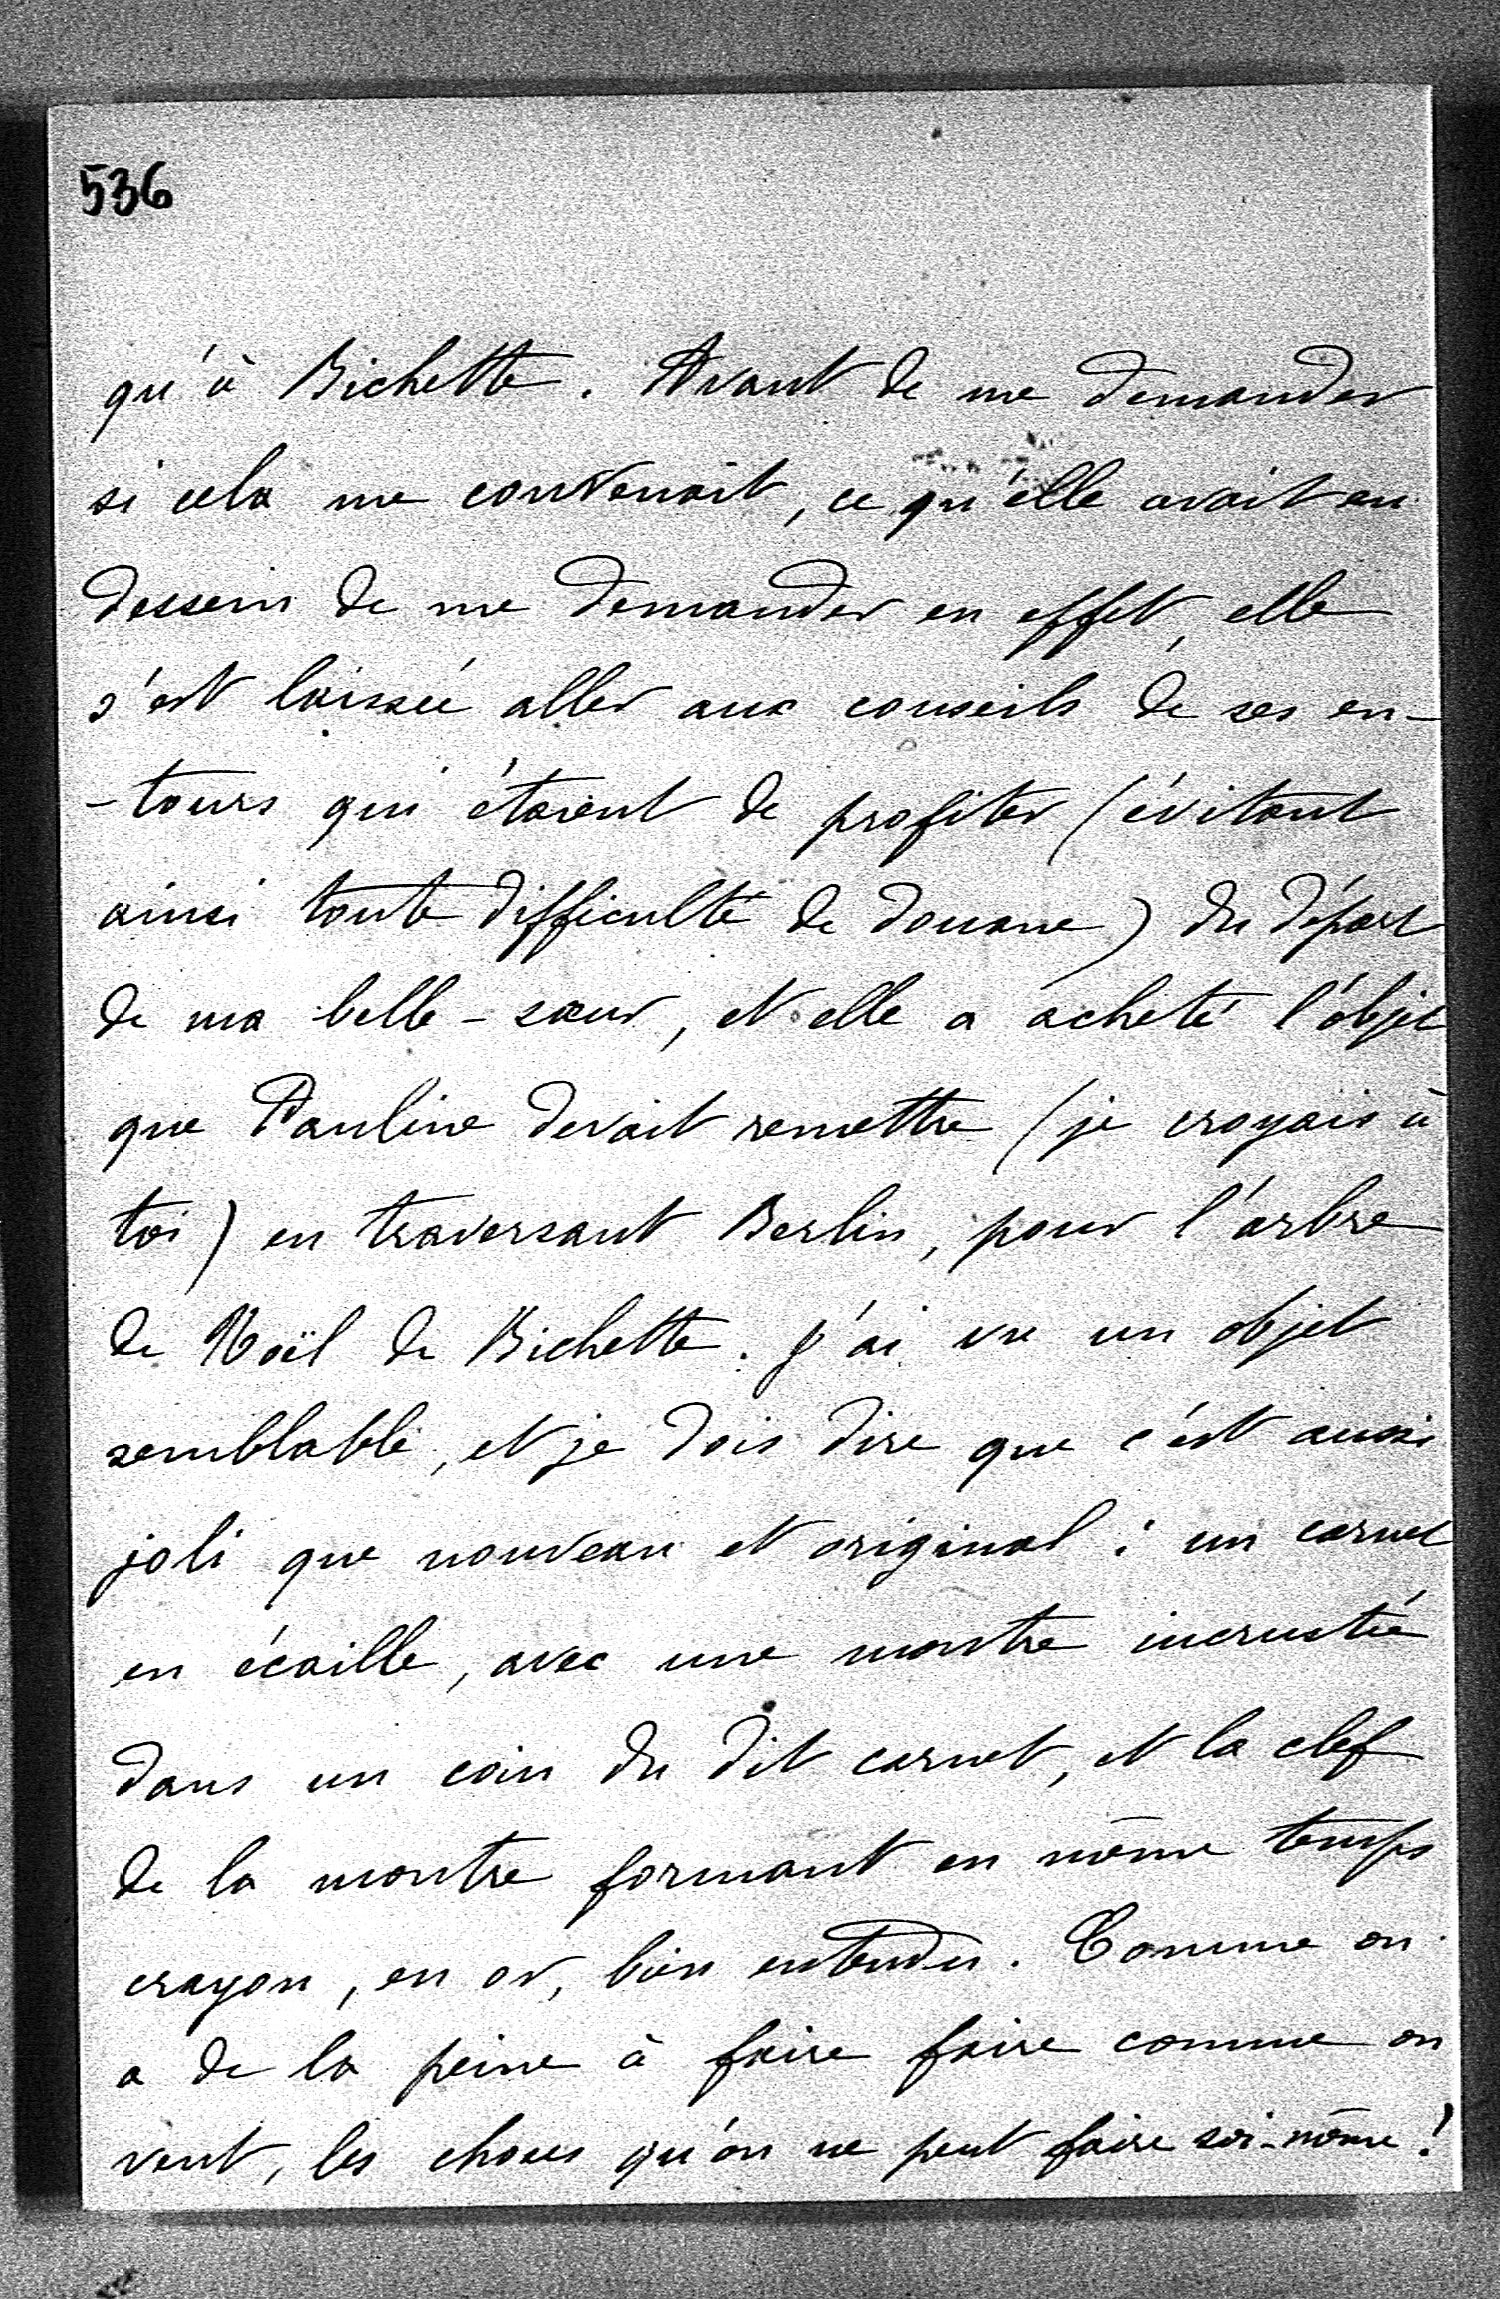 536
qu'à Bichette. Avant de me demander
si cela me convenait, ce qu'elle avait eu
dessein de me demander en effet, elle
s'est laissée aller aux conseils de ses en-
-tours qui étaient de profiter (évitant
ainsi toute difficulté de douane) du départ
de ma belle-sœur, et elle a acheté l'objet
que Pauline devait remettre (je croyais à
toi) en traversant Berlin, pour l'arbre
de Noël de Bichette. J'ai vu un objet
semblable, et je dois dire que c'est aussi
joli que nouveau et original : un carnet
en écaille, avec une montre incrustée
dans un coin du dit carnet, et la clef
de la montre formant en même temps
crayon, en or, bien entendu. Comme on
a de la peine à faire faire comme on
veut, les choses qu'on ne peut faire soi-même!